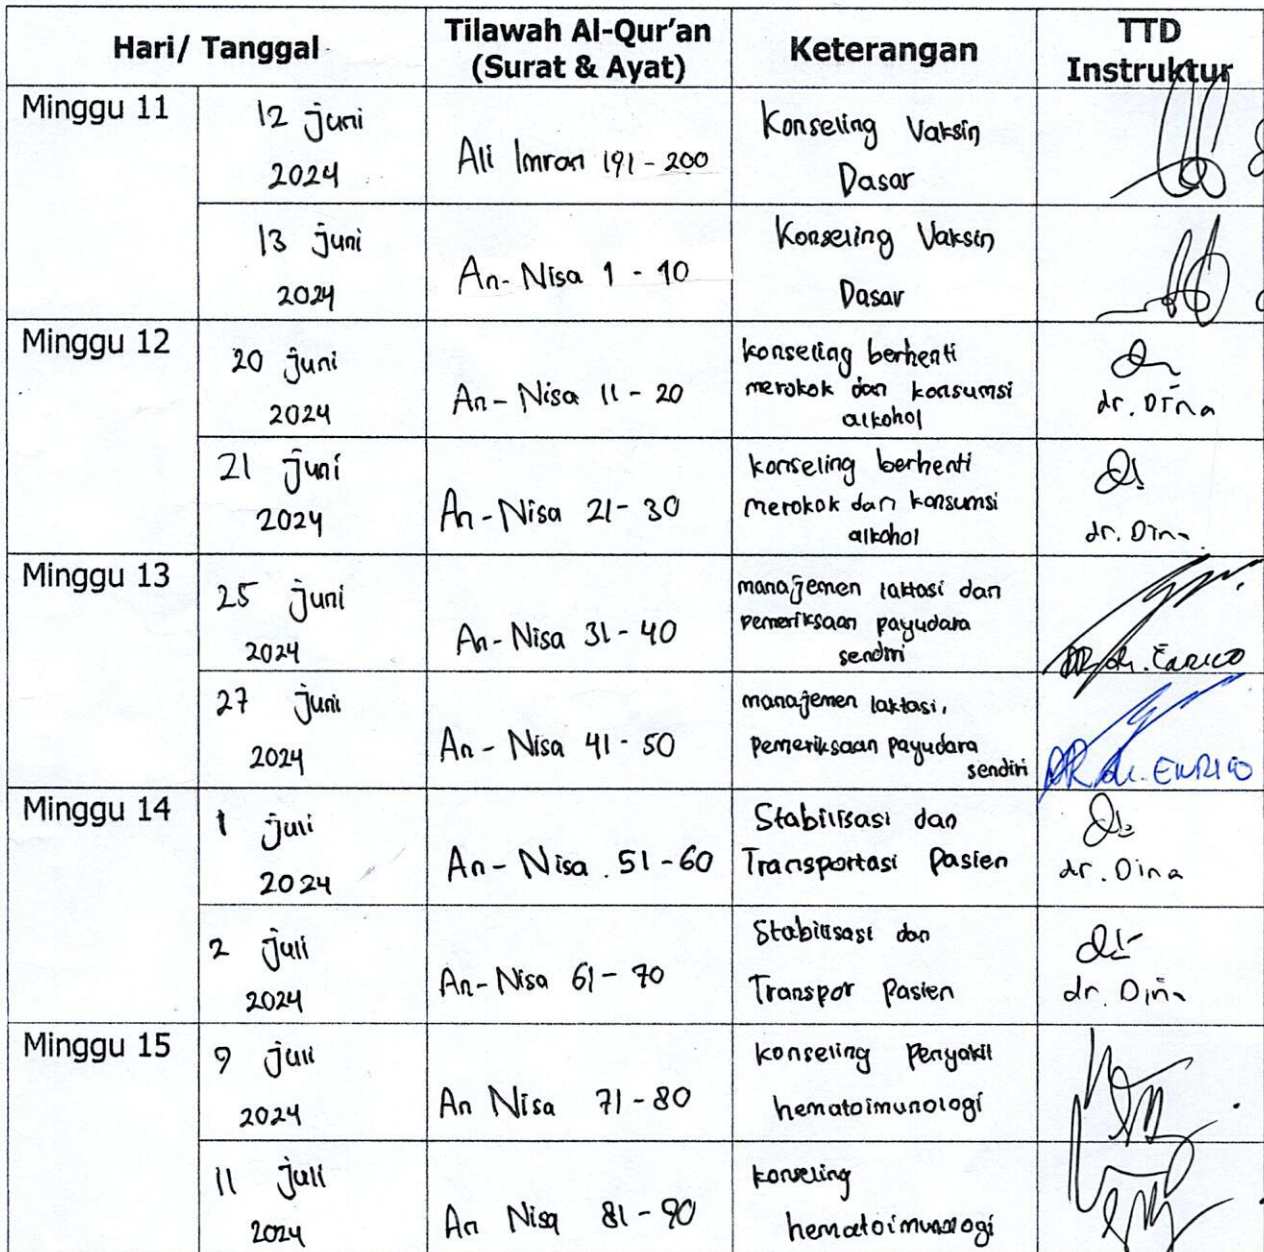 Hari/ Tanggal
Tilawah Al-Qur'an
(Surat & Ayat)
Keterangan
TTD
Instruktur
Minggu 11
12 juni
2024
Ali Imran 191 - 200
Konseling Vaksin
Dasar
13 juni
2024
An-Nisa 1 - 10
Konseling Vaksin
Dasar
Minggu 12
20 juni
2024
An-Nisa 11 - 20
konseling berhenti
merokok dan konsumsi
alkohol
dr. Dina
21 juni
2024
An-Nisa 21 - 30
konseling berhenti
merokok dan konsumsi
alkohol
dr. Dina
Minggu 13
25 juni
2024
An-Nisa 31 - 40
manajemen laktasi dan
pemeriksaan payudara
sendiri
DR dr. Enrico
27 juni
2024
An-Nisa 41 - 50
manajemen laktasi,
pemeriksaan payudara
sendiri
DR dr. ENRICO
Minggu 14
1 juli
2024
An-Nisa 51 - 60
Stabilisasi dan
Transportasi Pasien
dr. Dina
2 juli
2024
An-Nisa 61 - 70
Stabilisasi dan
Transpor Pasien
dr. Dina
Minggu 15
9 juli
2024
An Nisa 71 - 80
konseling Penyakit
hematoimunologi
11 juli
2024
An Nisa 81 - 90
konseling
hematoimunologi